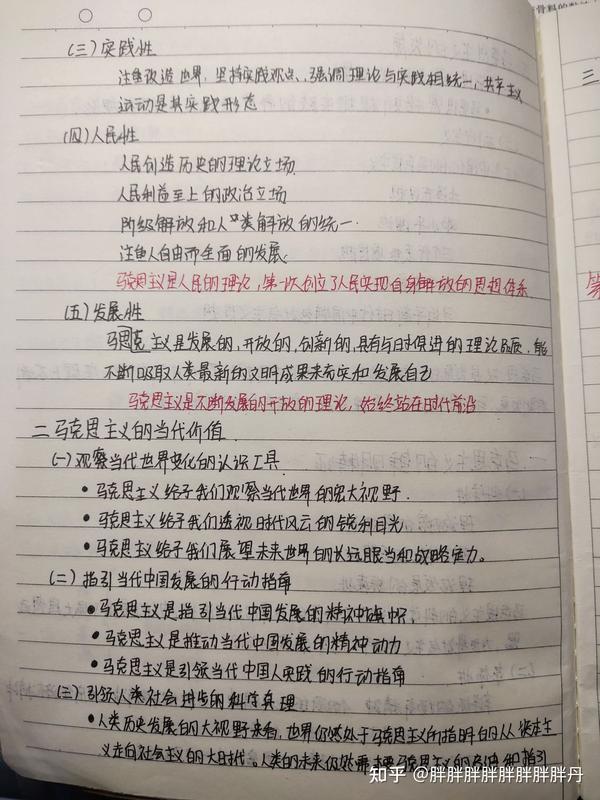 (三)实践性
注重改造世界,坚持实践观点、强调理论与实践相统一,共产主义
运动是其实践形态
(四)人民性
人民创造历史的理论立场
人民利益至上的政治立场
阶级解放和人类解放的统一.
注重人自由而全面的发展.
马克思主义是人民的理论,第一次创立了人民实现自身解放的思想体系
(五)发展性
马克思主义是发展的,开放的,创新的,具有与时俱进的理论品质,能
不断吸取人类最新的文明成果来充实和发展自己
马克思主义是不断发展的开放的理论,始终站在时代前沿
二 马克思主义的当代价值
(一)观察当代世界变化的认识工具.
•马克思主义给予我们观察当代世界的宏大视野.
•马克思主义给予我们透视时代风云的锐利目光
•马克思主义给予我们展望未来世界的长远眼光和战略定力。
(二)指引当代中国发展的行动指南
•马克思主义是指引当代中国发展的精神旗帜.
•马克思主义是推动当代中国发展的精神动力
•马克思主义是引领当代中国人实践的行动指南
(三)引领人类社会进步的科学真理
•人类历史发展的大视野来看,世界仍然处于马克思主义所指明的从资本主
义走向社会主义的大时代。人类的未来仍然需要马克思主义的指引
三
知乎 @胖胖胖胖胖胖胖胖丹